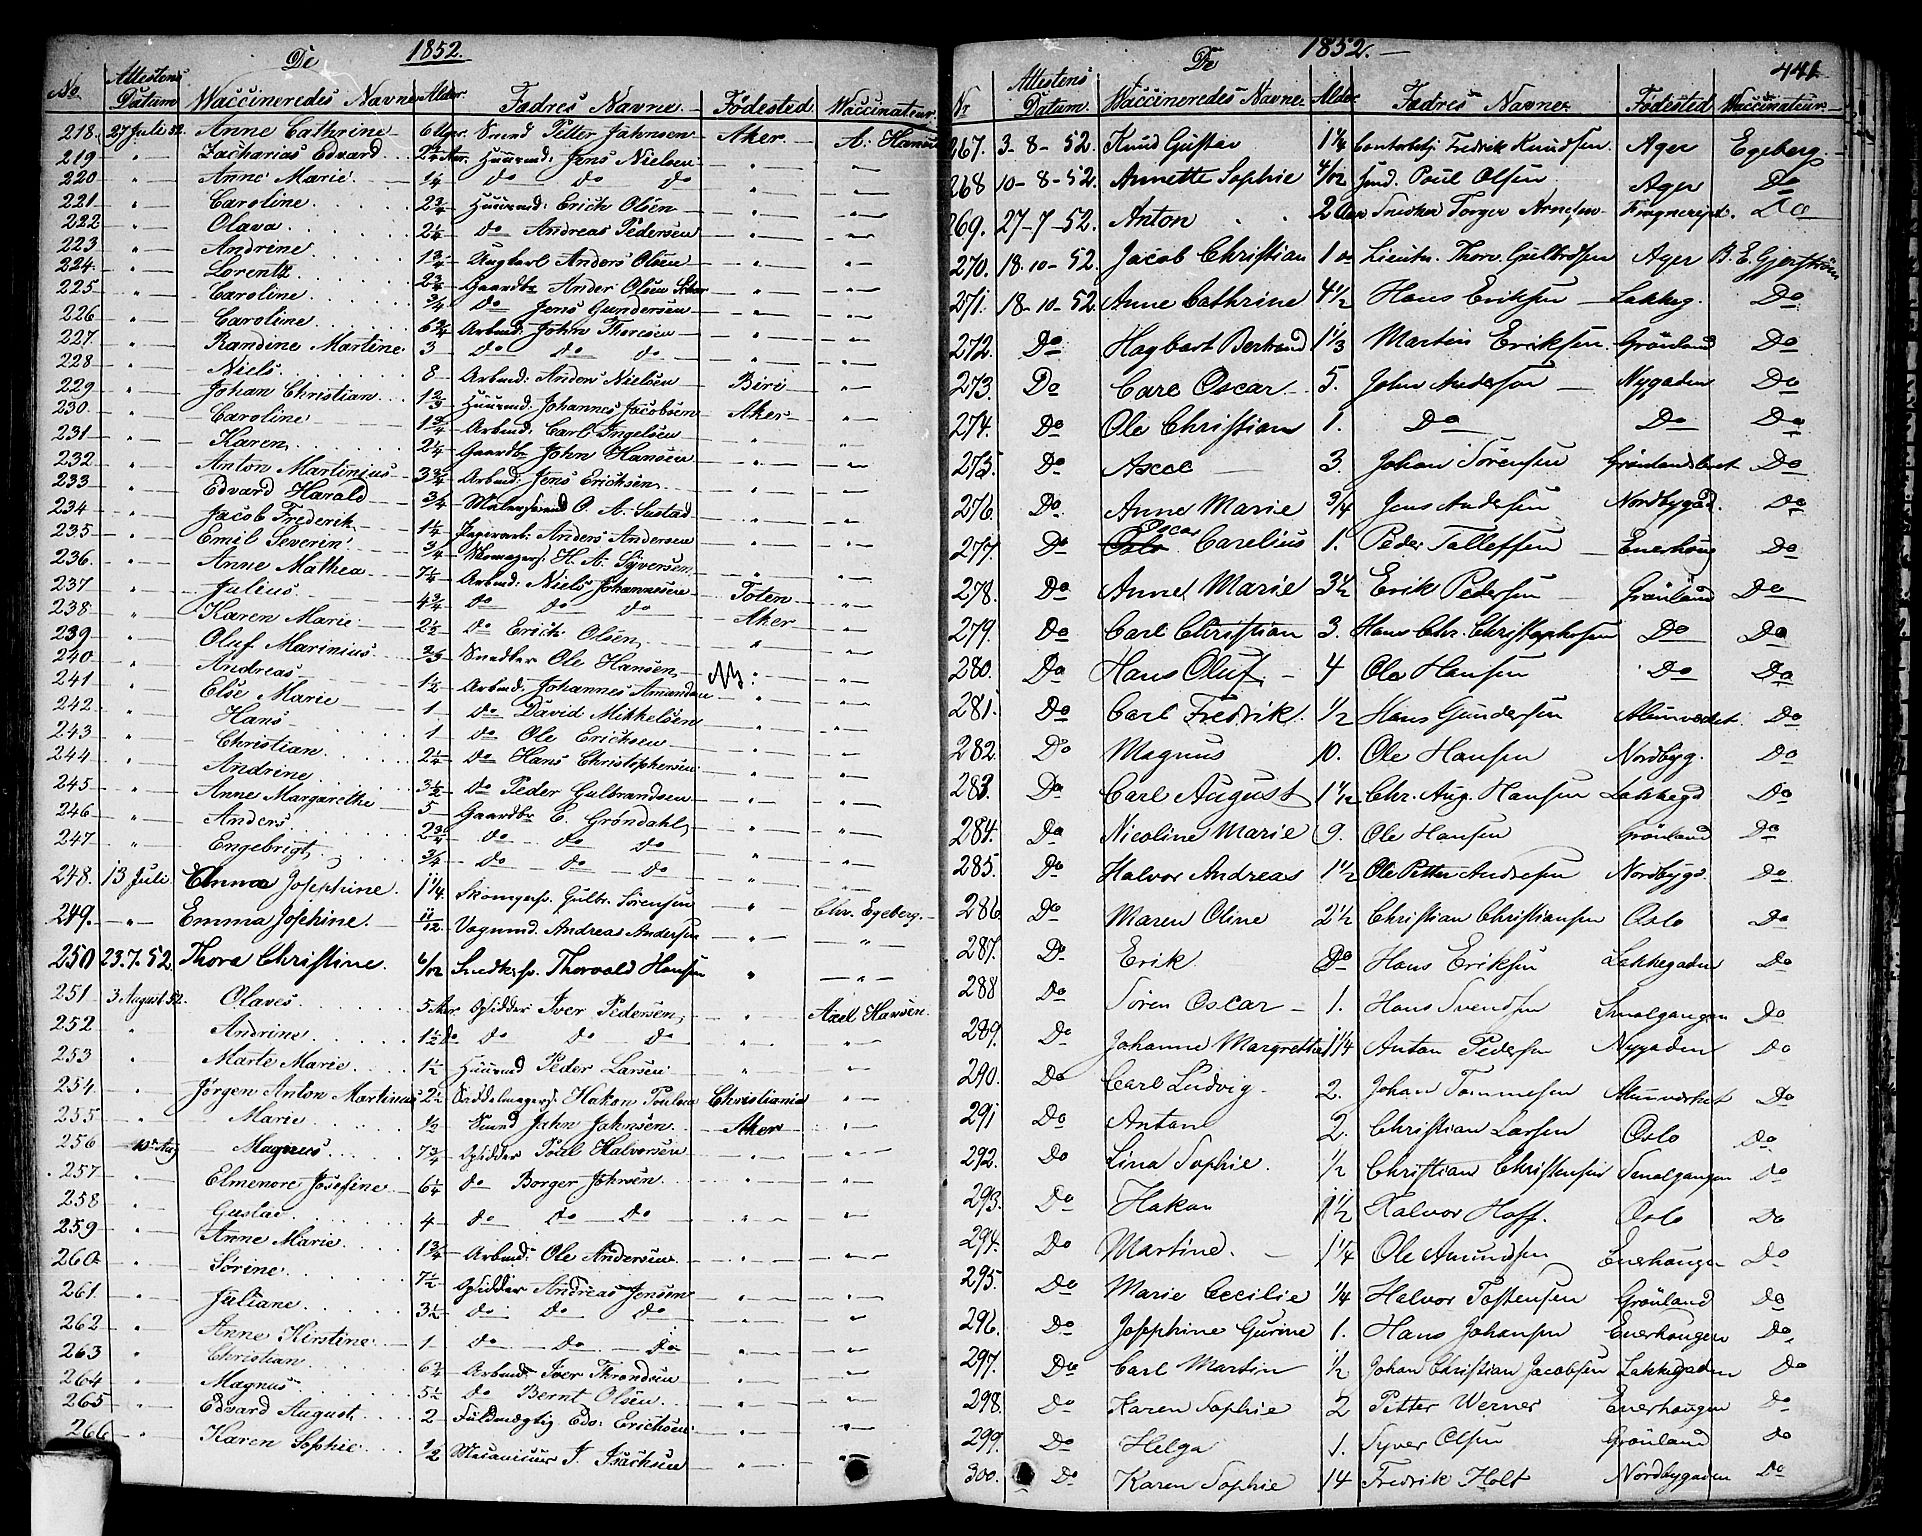 De 1852.
No Attestens Datum Waccineredes Navne Alder Fadres Navne Födested Waccinateur
218. 27 Juli 52. Anne Cathrine 6 Petter Jahnsen Aker A. Hansen
219 " Zacharias Edvard 2 3/4 Huusmd: Jens Nielsen " "
220 " Anne Marie 1/4 do do do " "
221 " Caroline 2 3/4 Huusmd: Erich Olsen " "
222 " Olava 2 1/4 do Andreas Pedersen " "
223 " Andrine 1 3/4 Ungkarl Anders Olsen " "
224 " Lorentz 2 3/4 Gaardbr Ander Olsen Aker " "
225 " Caroline 3/4 Do Jens Gundersen " "
226 " Caroline 6 3/4 Arbmd: Johan Thoresen " "
227 " Randine Martine 3 do do do " "
228 " Niels 8 Arbmd: Anders Nielsen Biri "
229 " Johan Christian 1 2/3 Huusmd: Johannes Jacobsen Aker "
230 " Caroline 1 3/4 Arbmd: Carl Ingelsen " "
231 " Karen 2 1/4 Gaardbr John Hansen " "
232 " Anton Martinius 3 3/4 Arbmd: Jens Erichsen " "
233 " Edvard Harald 3/4 Malersvend O. A. Sustad " "
234 " Jacob Frederik 1 1/2 Anders Andersen " "
235 " Emil Severin 3/4 Skomagers. H. A. Syversen " "
236 " Anne Mathea 7 1/2 Arbmd: Niels Johannesen Toten "
237 " Julius 4 3/4 do do do Aker "
238 " Karen Marie 2 1/2 do Erich Olsen " "
239 " Oluf Marinius 2/3 Snedker Ole Hansen " "
240 " Andreas 1 1/2 Arbmd: Johannes Amundsen " "
241 " Else Marie 1 do David Mikkelsen " "
242 " Hans 1 do Ole Erichsen " "
243 " Christian 2 1/4 do Hans Christophersen " "
244 " Andrine 3 1/2 do Peder Gulbrandsen " "
245 " Anne Margarethe 5 Gaardbr E. Gröndahl " "
246 " Anders 2 3/4 do do do " "
247 " Engebrigt 3/4 do do do " "
248. 13 Juli Emma Josephine. 1 1/4 Skomgersv. Gulbr. Sörensen " Chr. Egeberg.
249. " Emma Josephine. 11/12 Vognmd. Andreas Andersen " "
250 23.7.52. Thora Christine. 6/12 Snedkersv. Thorvald Hansen " "
251 3 August 52. Olaves 5 Opsidder Iver Pedersen " Axel Hansen
252 " Andrine 1 1/2 do do do do " "
253 " Marte Marie 1 1/2 Huusmd Peder Larsen " "
254 " Jörgen Anton Martinus 2 1/2 Saddelmagers. Hakon Poulsen Christiania "
255 " Marie 1/3 Smed Jahn Jahnsen Aker "
256 10 Aug Magnus 7 3/4 Opsidder Poul Halvorsen " "
257 " Elmenore Josefine 6 1/4 do Borger Johnsen " "
258 " Gustav 4 do do do " "
259 " Anne Marie 1 3/4 Arbmd: Ole Andersen " "
260 " Sörine 7 1/2 Opsidder Andreas Jensen " "
261 " Juliane 3 1/2 do do do " "
262 " Anne Kirstine 1 do do do " "
263 " Christian 6 3/4 Arbmd: Iver Throndsen " "
264 " Magnus 5 1/2 do Bernt Olsen " "
265 " Edvard August 2 Fuldmægtig Edv: Erichsen " "
266 " Karen Sophie 1/2 Mecanicus J. Isachsen " "
De 1852. 441
Nr Attestens Datum. Waccineredes Navne. Alder. Fadres Navne. Födested Waccinateur
267. 3-8-52. Knud Gustav 1 1/4 Fredrik Knudsen. Ager Egeberg.
268 10-8-52. Annette Sophie 4/12 Poul Olsen Ager Do
269. 27-7-52. Anton 2 Snedker Torger Arnesen Do
270. 18-10-52. Jacob Christian 1 Lieutn. Thorv. Gulbrdsen Ager B. E. Gjerström
271. 18-10-52. Anne Cathrine 4 1/2 Hans Eriksen Lakkeg. Do
272. Do Hagbart Bertrand 1 1/3 Martin Eriksen Grönland Do
273. Do Carl Oscar 5. John Anderson Nygaden Do
274. Do Ole Christian 1. Do Do Do
275. Do Axel 3. Johan Sörensen Grönlandsleret Do
276. Do Anne Marie 3/4 Jens Andersen Nordbygad. Do
277. Do Oscar Carelius 1. Peder Tollefsen Enerhaug Do
278. Do Anne Marie 3 1/2 Erik Pedersen Grönland Do
279. Do Carl Christian 3. Hans Chr. Christophersen Do Do
280. Do Hans Oluf. 4 Ole Hansen Do Do
281. Do Carl Fredrik. 1/2 Hans Gundersen Alunværket. Do
282. Do Magnus 10. Ole Hansen Nordbyg. Do
283. Do Carl August 1 1/12 Chr. Aug. Hansen Lakkegd Do
284. Do Nicoline Marie 9. Ole Hansen Grönland Do
285. Do Halvor Andreas 1 1/2 Ole Petter Andresen Nordbygd. Do
286 Do Maren Oline 2 1/2 Christian Christiansen Oslo Do
287. Do Erik Do Hans Eriksen Lakkegaden Do
288 Do Sören Oscar 1. Hans Svendsen Smalgangen Do
289. Do Johanne Margrethe 1 1/4 Anton Pedersen Nygaden Do
290. Do Carl Ludvig. 2. Johan Tommesen Alunværket Do
291 Do Anton 2. Christian Larsen Oslo Do
292. Do Lina Sophie. 1/2 Christian Christensen Smalgangen Do
293. Do Hakon 1 1/2 Halvor Hoff. Oslo Do
294. Do Martine. 1 1/4 Ole Amundsen Enerhaugen Do
295. Do Marie Cecilie 1/4 Halvor Tostensen Grönland Do
296. Do Josephine Gurine 1. Hans Johansen Enerhaugen Do
297. Do Carl Martin 1/2 Johan Christian Jacobsen Lakkegaden Do
298. Do Karen Sophie 2 Petter Werner Enerhaugen Do
299. Do Helga 1. Syver Olsen Grönland Do
300. Do Karen Sophie 14 Fredrik Holt Nordbygaden Do